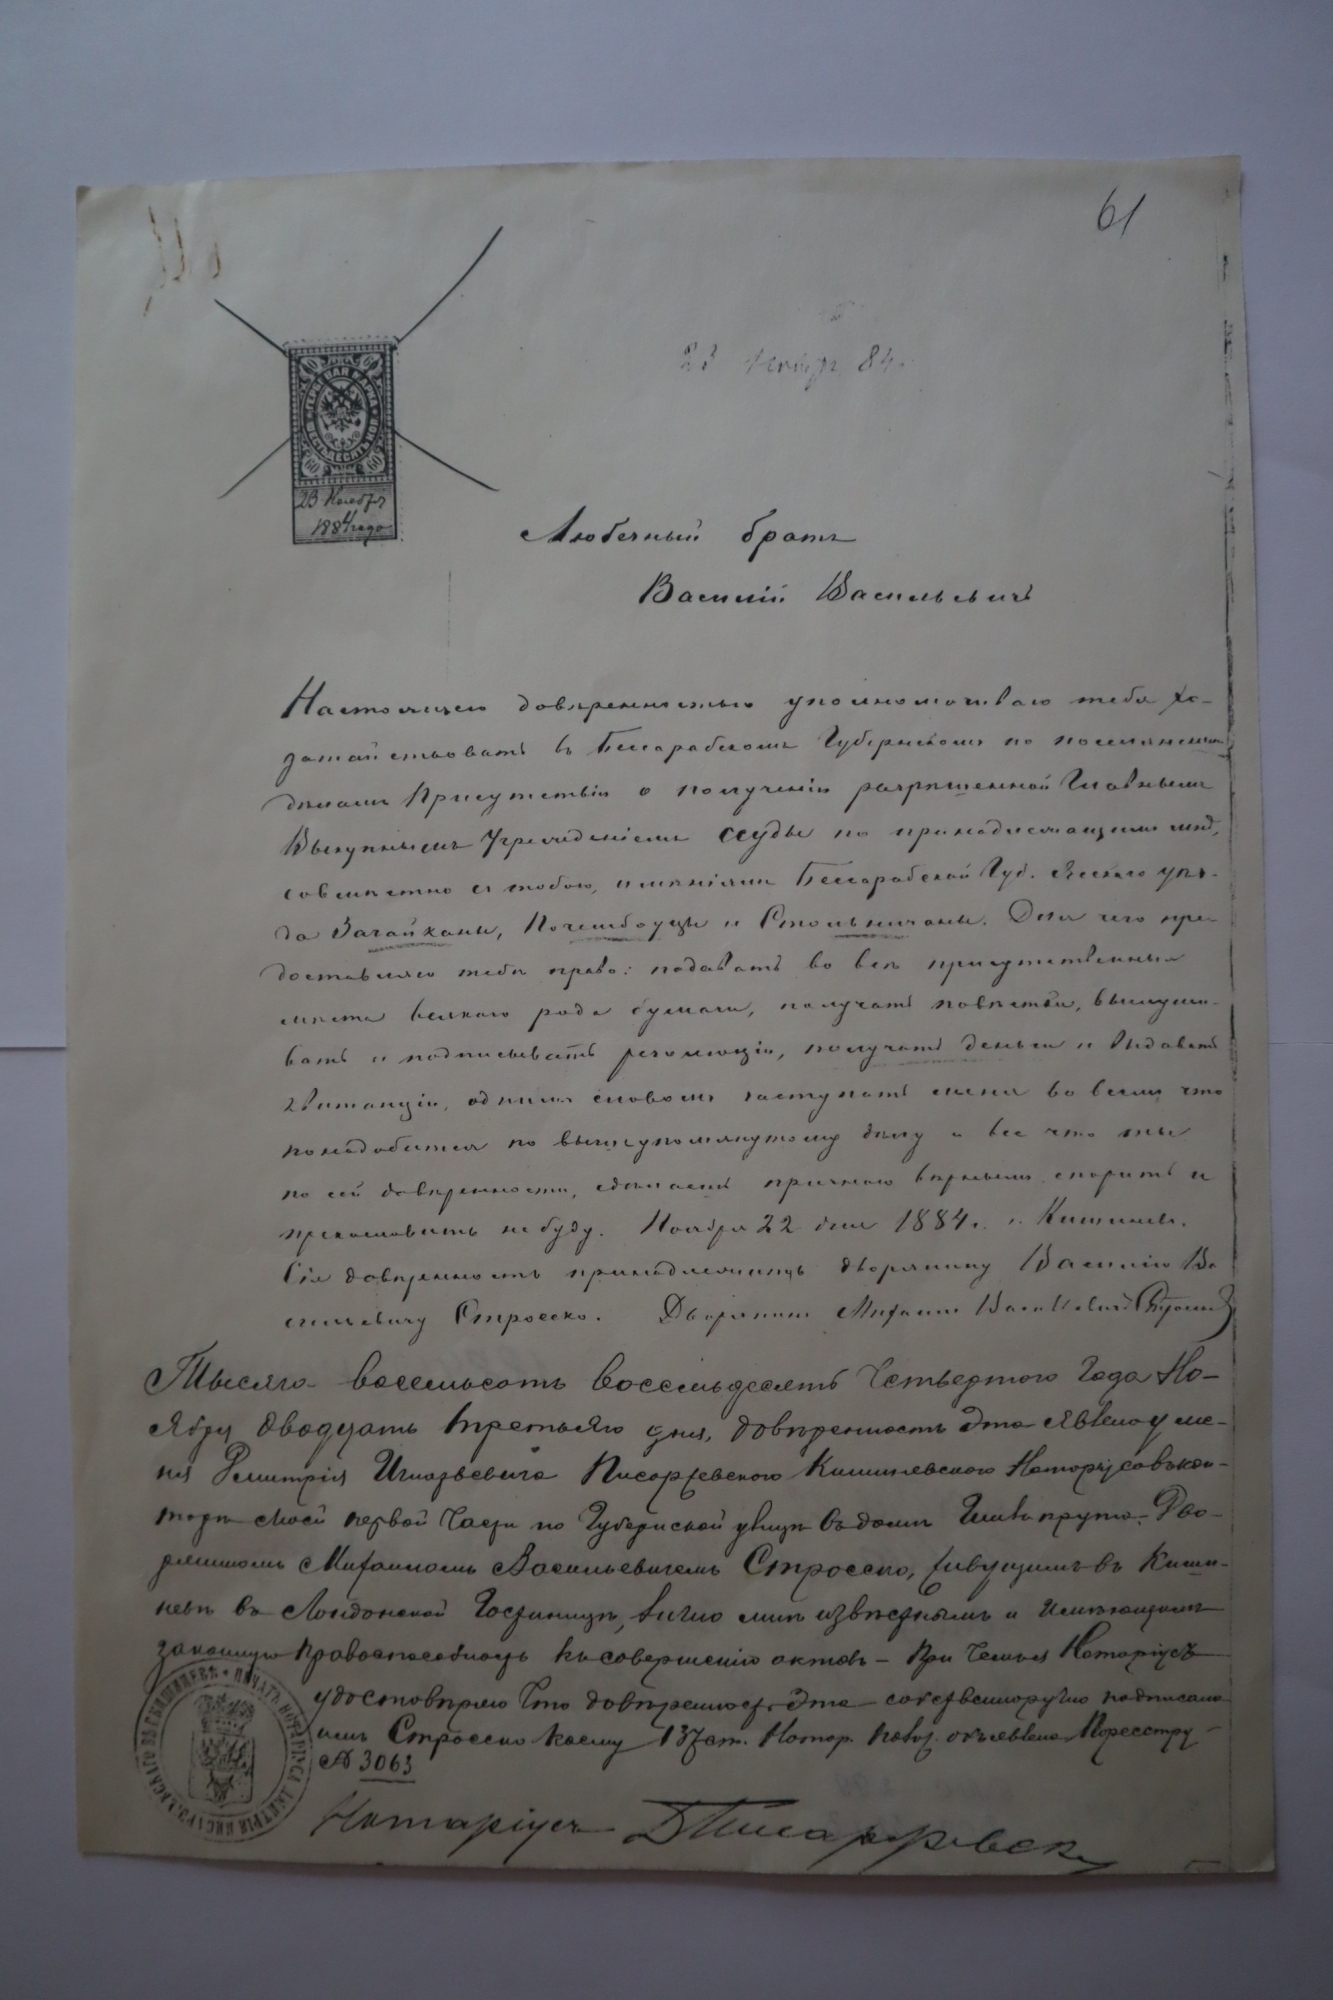 61
23 Ноября 84.
60 60
ГЕРБОВАЯ МАРКА
ШЕСТЬДЕСЯТЪ КОП.
60 60
23 Ноября
1884 года
Любезный братъ
Василій Васильевичъ
Настоящею довѣренностью уполномочиваю тебя хо-
датайствовать въ Бессарабскомъ Губернскомъ по поселянскимъ
дѣламъ Присутствіи о полученіи разрѣшенной Главнымъ
Выкупнымъ Учрежденіемъ ссуды по принадлежащимъ мнѣ,
совмѣстно съ тобою, имѣніямъ Бессарабской Губ. Ясскаго уѣз-
да Загайканы, Почешбоуцы и Стольничаны. Для чего пре-
доставляю тебѣ право: подавать во всѣ присутственныя
мѣста всякаго рода бумаги, получать повѣстки, выслуши-
вать и подписывать резолюціи, получать деньги и выдавать
квитанціи, однимъ словомъ заступать меня во всемъ что
понадобится по вышеупомянутому дѣлу и все что ты
по сей довѣренности, сдѣлаешь признаю вѣрнымъ, спорить и
прекословить не буду. Ноября 22 дня 1884 г. г. Кишиневъ.
Сія довѣренность принадлежитъ дворянину Василію Ва
сильевичу Строеско. Дворянинъ Михаилъ Васильевичъ Строеско
Тысяча восемьсотъ восемьдесятъ Четвертого Года Но-
ября двадцать третьяго дня, довѣренность эта явлена у ме-
ня Дмитрія Игнатьевича Писаржевскаго Кишиневскаго Нотаріуса въ кон-
торѣ моей первой Части по Губернской улицѣ въ домѣ Дво-
ряниномъ Михаиломъ Васильевичемъ Строеско, живущимъ въ Киши-
невѣ въ Лондонской Гостиницѣ, лично мнѣ извѣстнымъ и имѣющимъ
законную правоспособность къ совершенію актовъ – При чемъ я Нотаріусъ
удостовѣряю что довѣренность эта собственноручно подписана
имъ Строеско коему 137 ст. Нотар. Полож. объявлена По реестру
№ 3063
Нотаріусъ Д Писаржевскій
ПЕЧАТЬ НОТАРІУСА ДМИТРІЯ ПИСАРЖЕВСКАГО ВЪ КИШИНЕВѢ